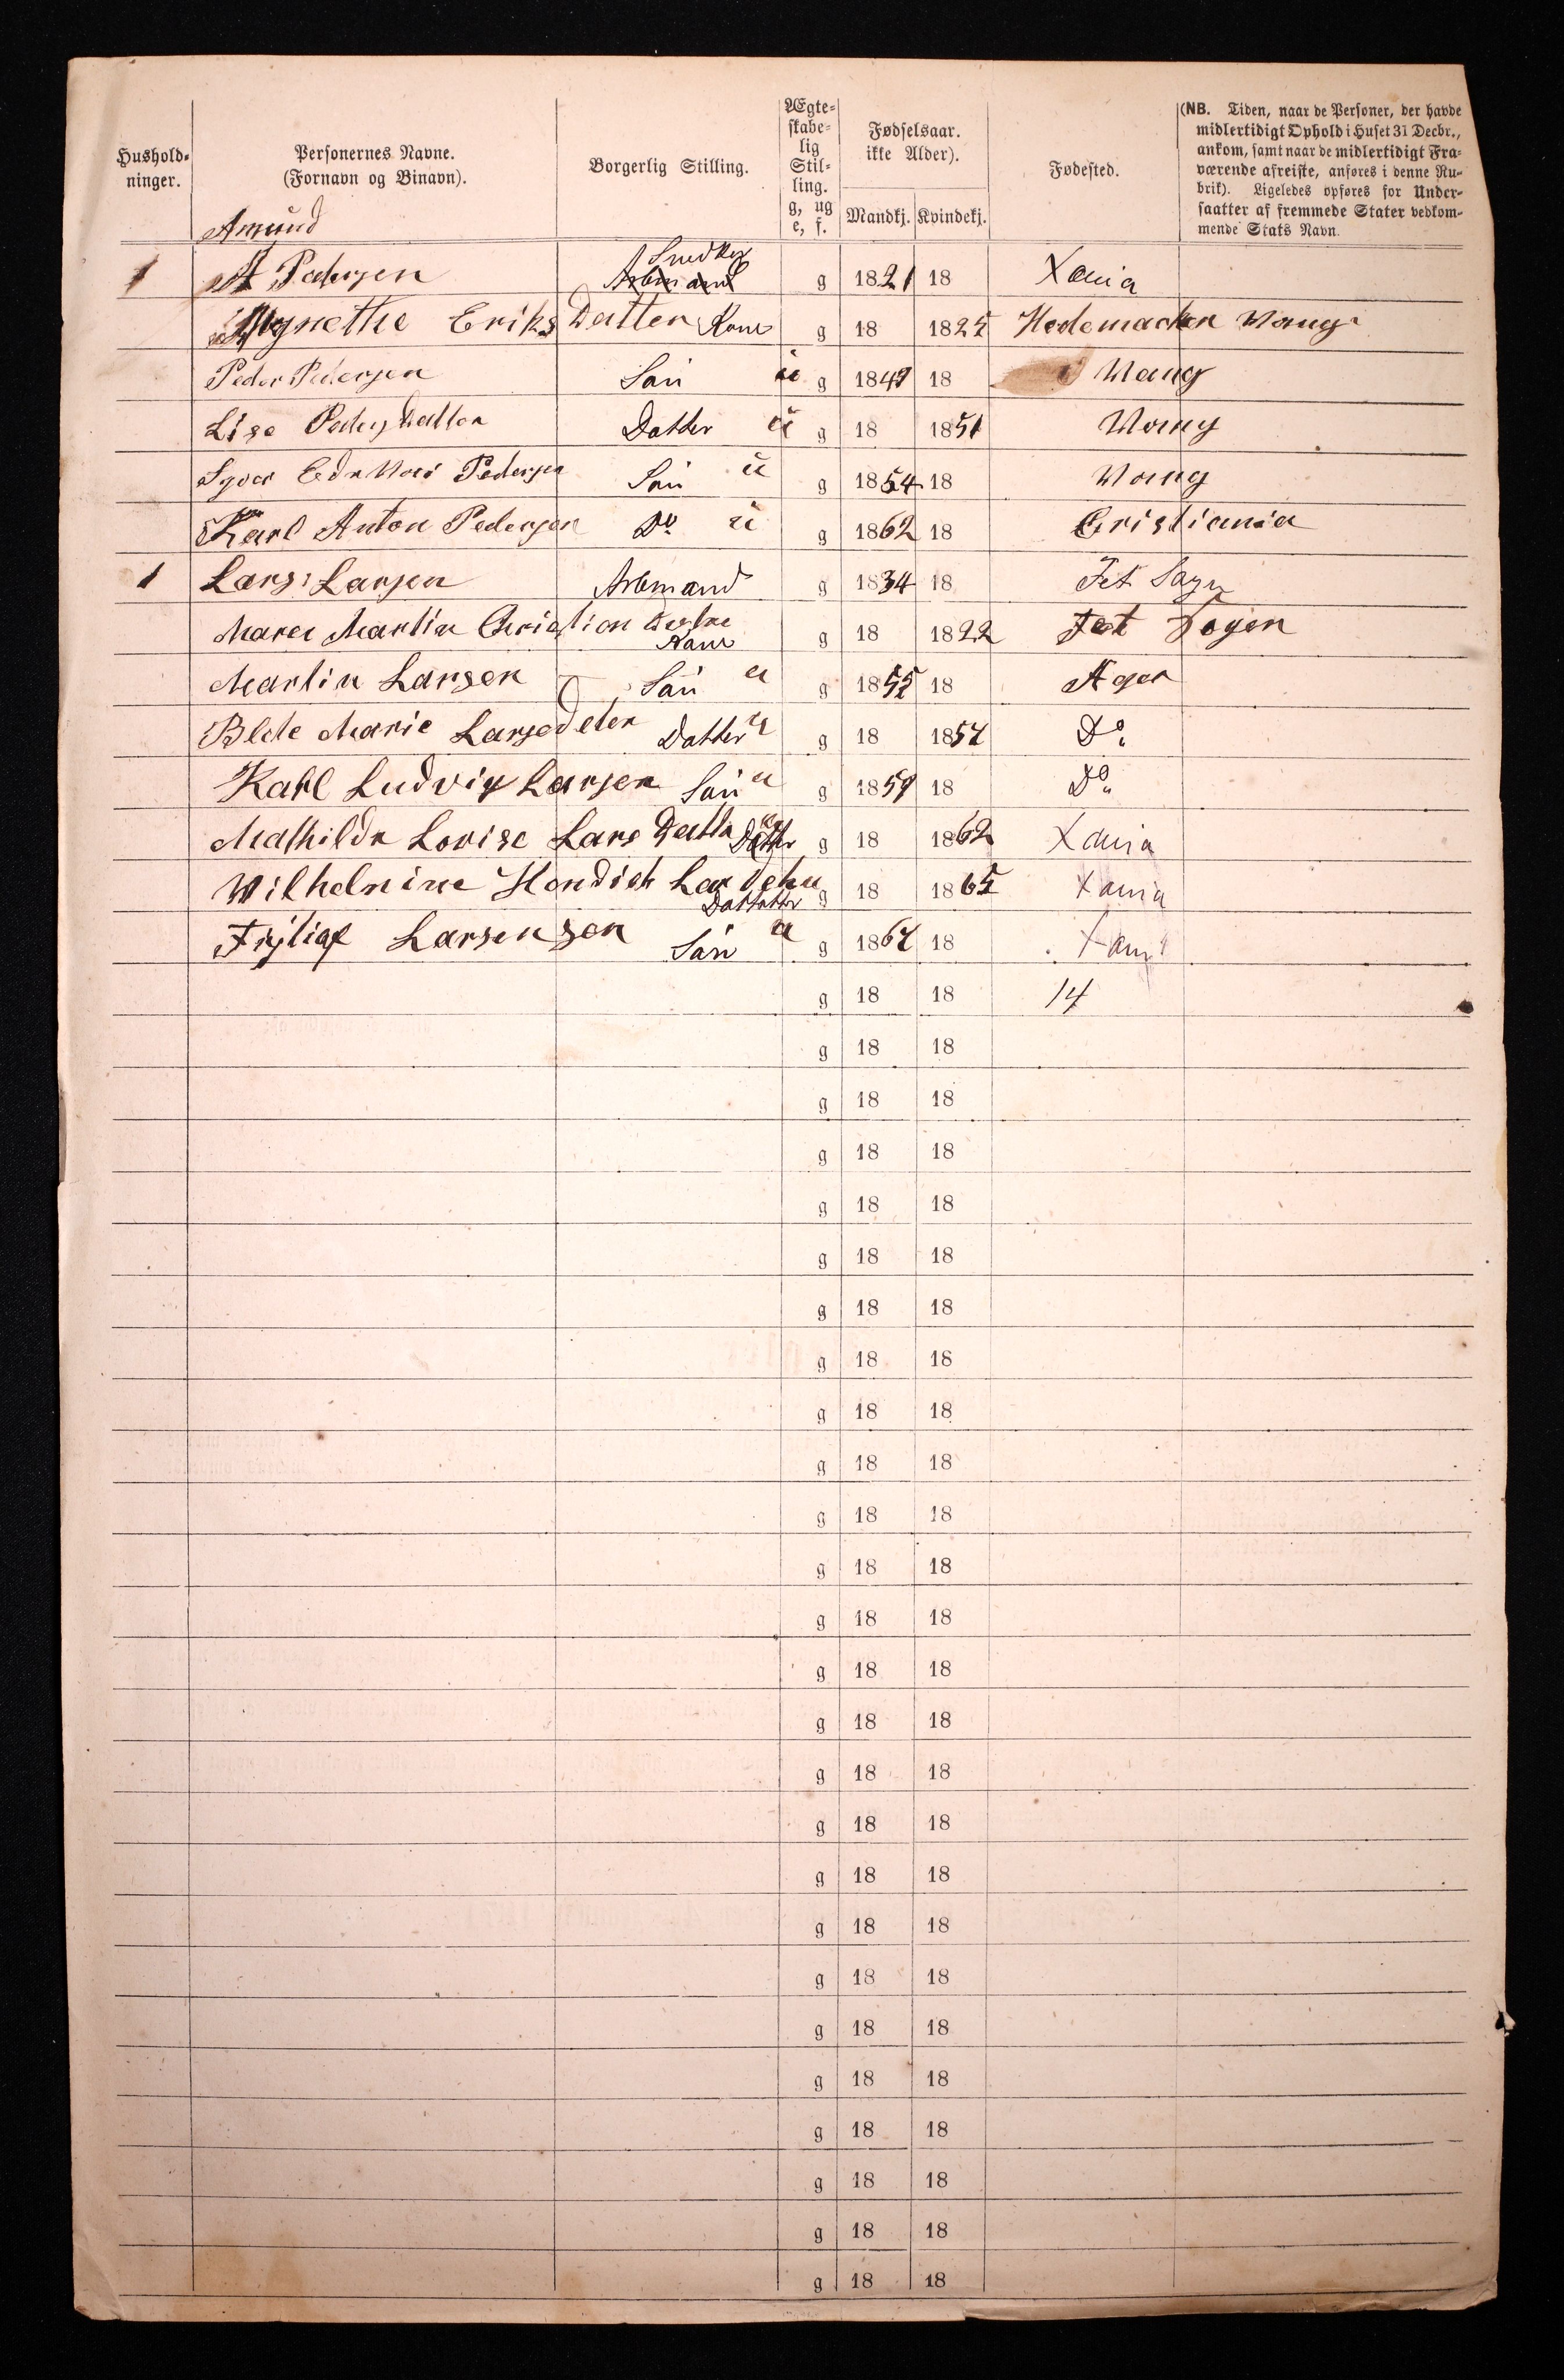 Hushold-
ninger.
Personernes Navne.
(Fornavn og Binavn).
Borgerlig Stilling.
Ægte-
skabe-
lig
Stil-
ling.
g, ug
e, f.
Fødselsaar.
ikke Alder).
Mandkj. Kvindekj.
Fødested.
(NB. Tiden, naar de Personer, der havde
midlertidigt Ophold i Huset 31 Decbr.,
ankom, samt naar de midlertidigt Fra-
værende afreiste, anføres i denne Ru-
brik). Ligeledes opføres for Under-
saatter af fremmede Stater vedkom-
mende Stats Navn.
Amund
Snedker
1 A Pedersen Arbmand g 1821 18 Xania
Agnethe Eriks Datter Kone g 18 1825 Hedemacken Wang
Peder Pedersen Sön u g 1849 18 Wang
Lise Peders Datter Datter u g 18 1851 Wang
Pedersen Sön u g 1854 18 Wang
Karl Anton Pedersen Do u g 1862 18 Cristiania
1 Lars Larsen Arbmand g 1834 18 Fet Sogn
Maren Martin Christian Datter
Kone g 18 1822 Fet Sogen
Martin Larsen Sön u g 1855 18 Ager
Marie Larsedeter Datter u g 18 1857 Do
Karl Ludvig Larsen Sön u g 1859 18 Do
Mathilde Lovise Lars Datter Datter u g 18 1862 Xania
Wilhelmine Hendich Lardeter u g 18 1865 Xania
Datter
Larsen son Sön u g 1867 18 Xania
g 18 18 14
g 18 18
g 18 18
g 18 18
g 18 18
g 18 18
g 18 18
g 18 18
g 18 18
g 18 18
g 18 18
g 18 18
g 18 18
g 18 18
g 18 18
g 18 18
g 18 18
g 18 18
g 18 18
g 18 18
g 18 18
g 18 18
g 18 18
g 18 18
g 18 18
g 18 18